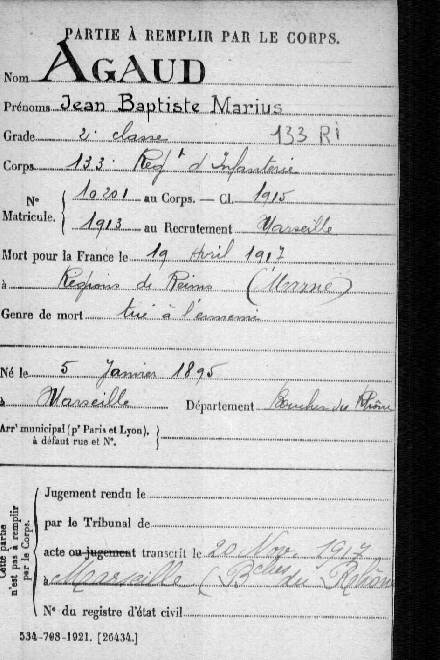 PARTIE À REMPLIR PAR LE CORPS.
Nom AGAUD
Prénoms Jean Baptiste Marius
Grade 2e classe 133 RI
Corps 133e Regt d'Infanterie
N° Matricule. { 10201 au Corps. — Cl. 1915
1913 au Recrutement Marseille
Mort pour la France le 19 Avril 1917
à Régions de Reims (Marne)
Genre de mort tué à l'ennemi
Né le 5 Janvier 1895
à Marseille Département Bouches du Rhône
Arr' municipal (pr Paris et Lyon),
à défaut rue et N°.
Cette partie n'est pas à remplir par le Corps.
Jugement rendu le
par le Tribunal de
acte ou jugement transcrit le 20 Nov. 1917
à Marseille (Bches du Rhône
N° du registre d'état civil
534-708-1921. [26434.]